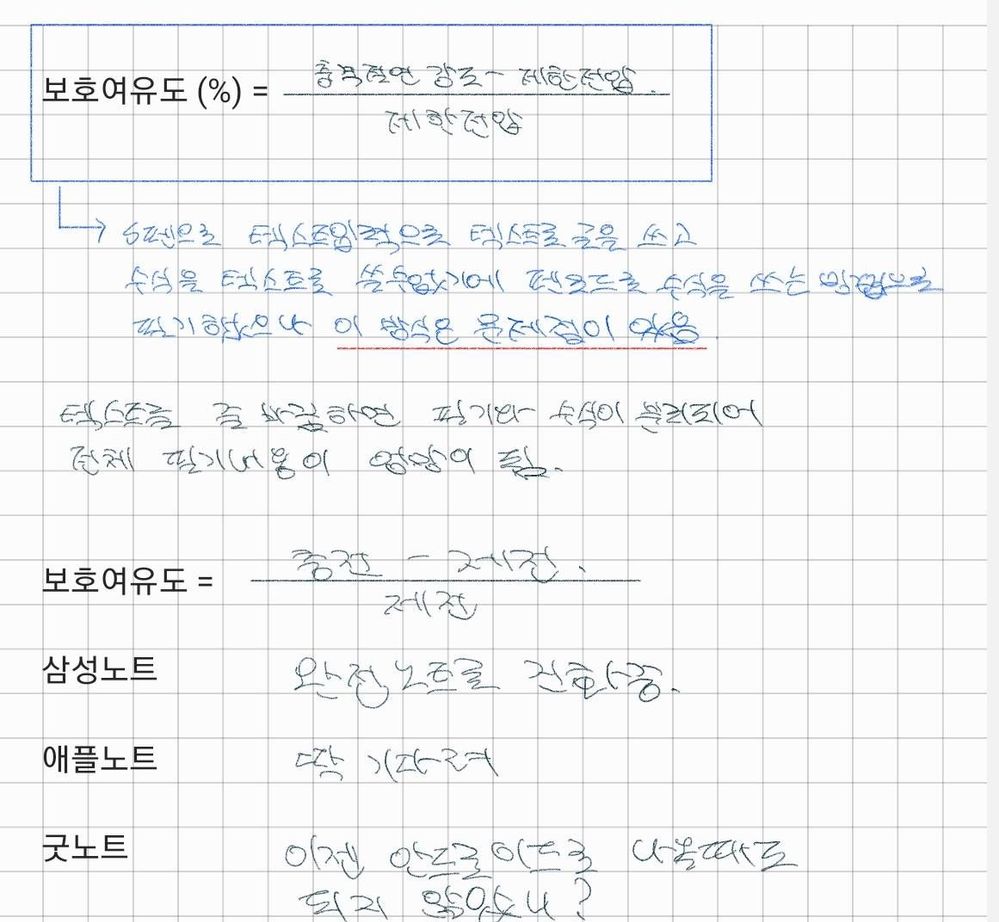 충격절연 강도 - 제한전압
보호여유도 (%) =
제한전압
S펜으로 텍스트입력으로 텍스트로 글을 쓰고
수식을 텍스트로 쓸수없기에 펜모드로 수식을 쓰는 방법으로
필기했으나 이 방식은 문제점이 있음.
텍스트를 줄 바꿈하면 필기와 수식이 분리되어
전체 필기내용이 엉망이 됨.
충전 - 제전.
보호여유도 =
제전
삼성노트 완전노트로 진화중.
애플노트 딱 기다려
굿노트 이젠 안드로이드로 나올때도
되지 않았나?